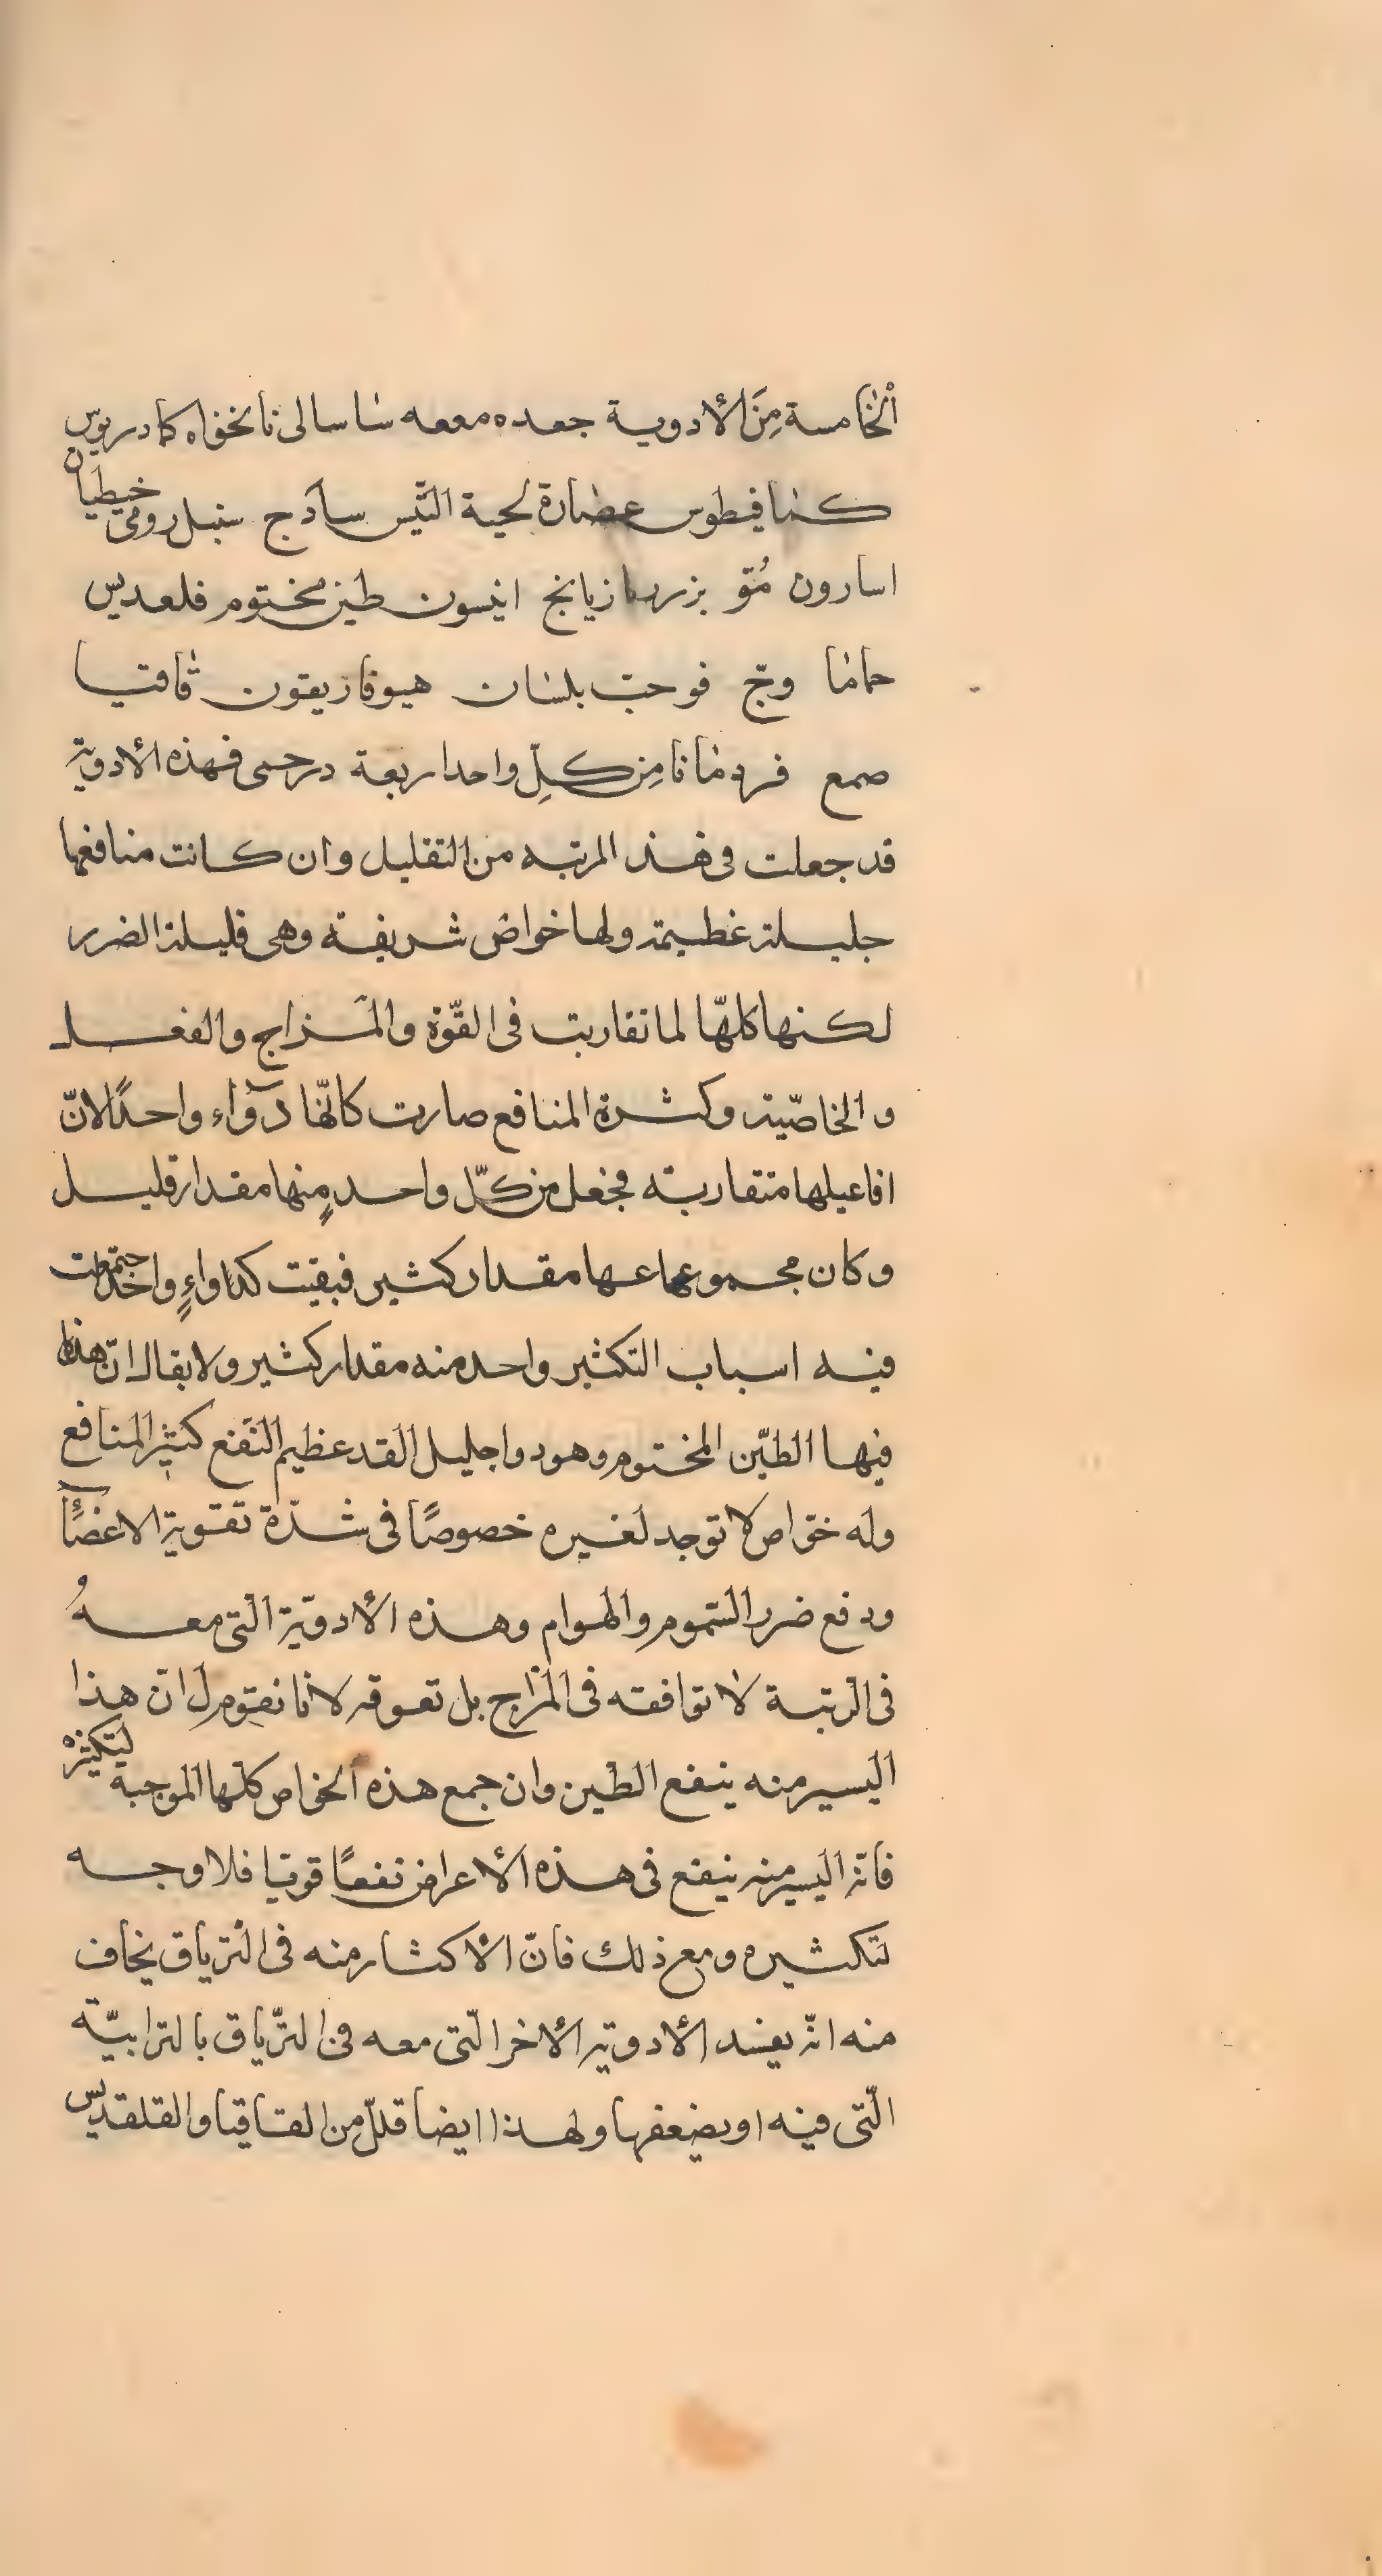 الخامسة مِنَ الأدوية جعده ومعه ساسالى نانخواه كمادريوس
كمافيطوس عصارة لحية التّيس ساذج سنبل رومى خيطيان
اسارون مُوّ بزر رازيانج انيسون طين مختوم قلعديس
حماما وجّ فو حبّ بلسان هيوفاريقون قاقيا
صمع قردمانا مِن كلِّ واحد اربعة درخمى فهذه الأدوية
قد جعلت فى هذه المرتبه من التقليل وان كانت منافعها
جليلة عظيمة ولها خواص شريفة وهى قليلة الضرر
لكنها كلهّا لما تقاربت فى القّوة والمَزاج والفعل
والخاصّية وكثرة المنافع صارت كانّها دوآء واحدًا لانّ
افاعيلها متقاربته فجعل من كلّ واحدٍ منها مقدار قليل
وكان مجموعها مقدار كثير فبقيت كدواءٍ واحد اجتمعت
فيه اسباب التكثير واحد منه مقدار كثير ولا يقال انّ هذه
فيها الطيّن المختوم وهو دوا جليل القد عظيم النّفع كثير المنافع
وله خوّاص لا توجد لغيره خصوصًا فى شدّة تقوية الاعضآء
ودفع ضرر السّموم والهوام وهذه الأدويّة الّتى معهُ
فى الرتبة لا توافقه فى المزاج بل تعوقه لانا نقوم لَ انّ هذا
اليسير منه ينفع الطين وان جمع هذه الخواص كلّها الموجبة لتكثيره
فانّه اليسير منه ينفع فى هذه الأعراض نفعًا قويّا فلا وجه
لتكثيره ومع ذلك فانّ الأكثار منه فى الترياق يخاف
منه انّه يفسد الأدويّة الأخر الّتى معه فى التّرياق بالترابيّة
الّتى فيه او يضعفها ولهذا ايضا قللّ من القاقيا والقلقديس